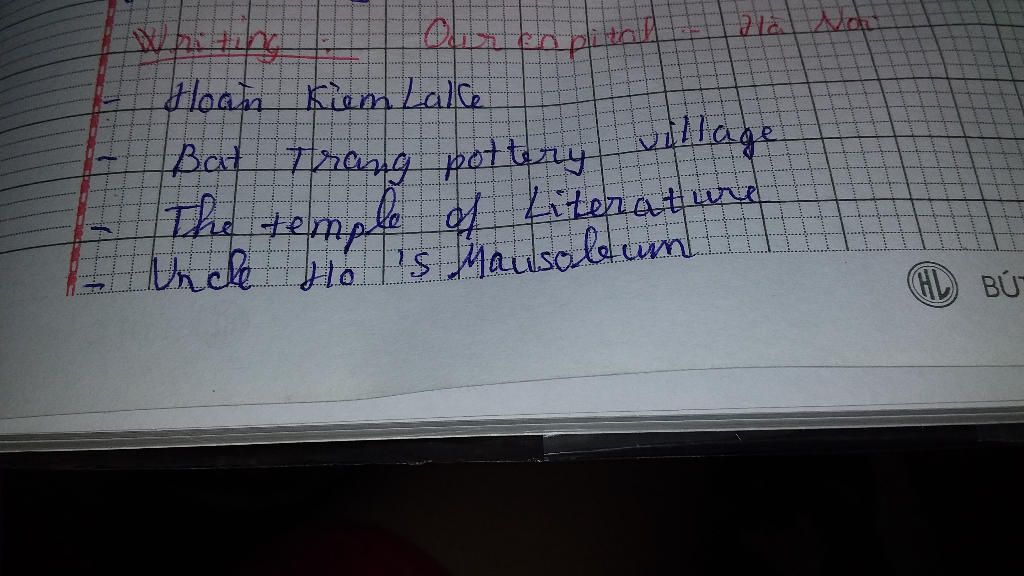 Writing : Our capital - Hà Nội
- Hoàn Kiem Lake
- Bat Trang pottery village
- The temple of Literature
- Uncle Ho 's Mausoleum
HL BÚT